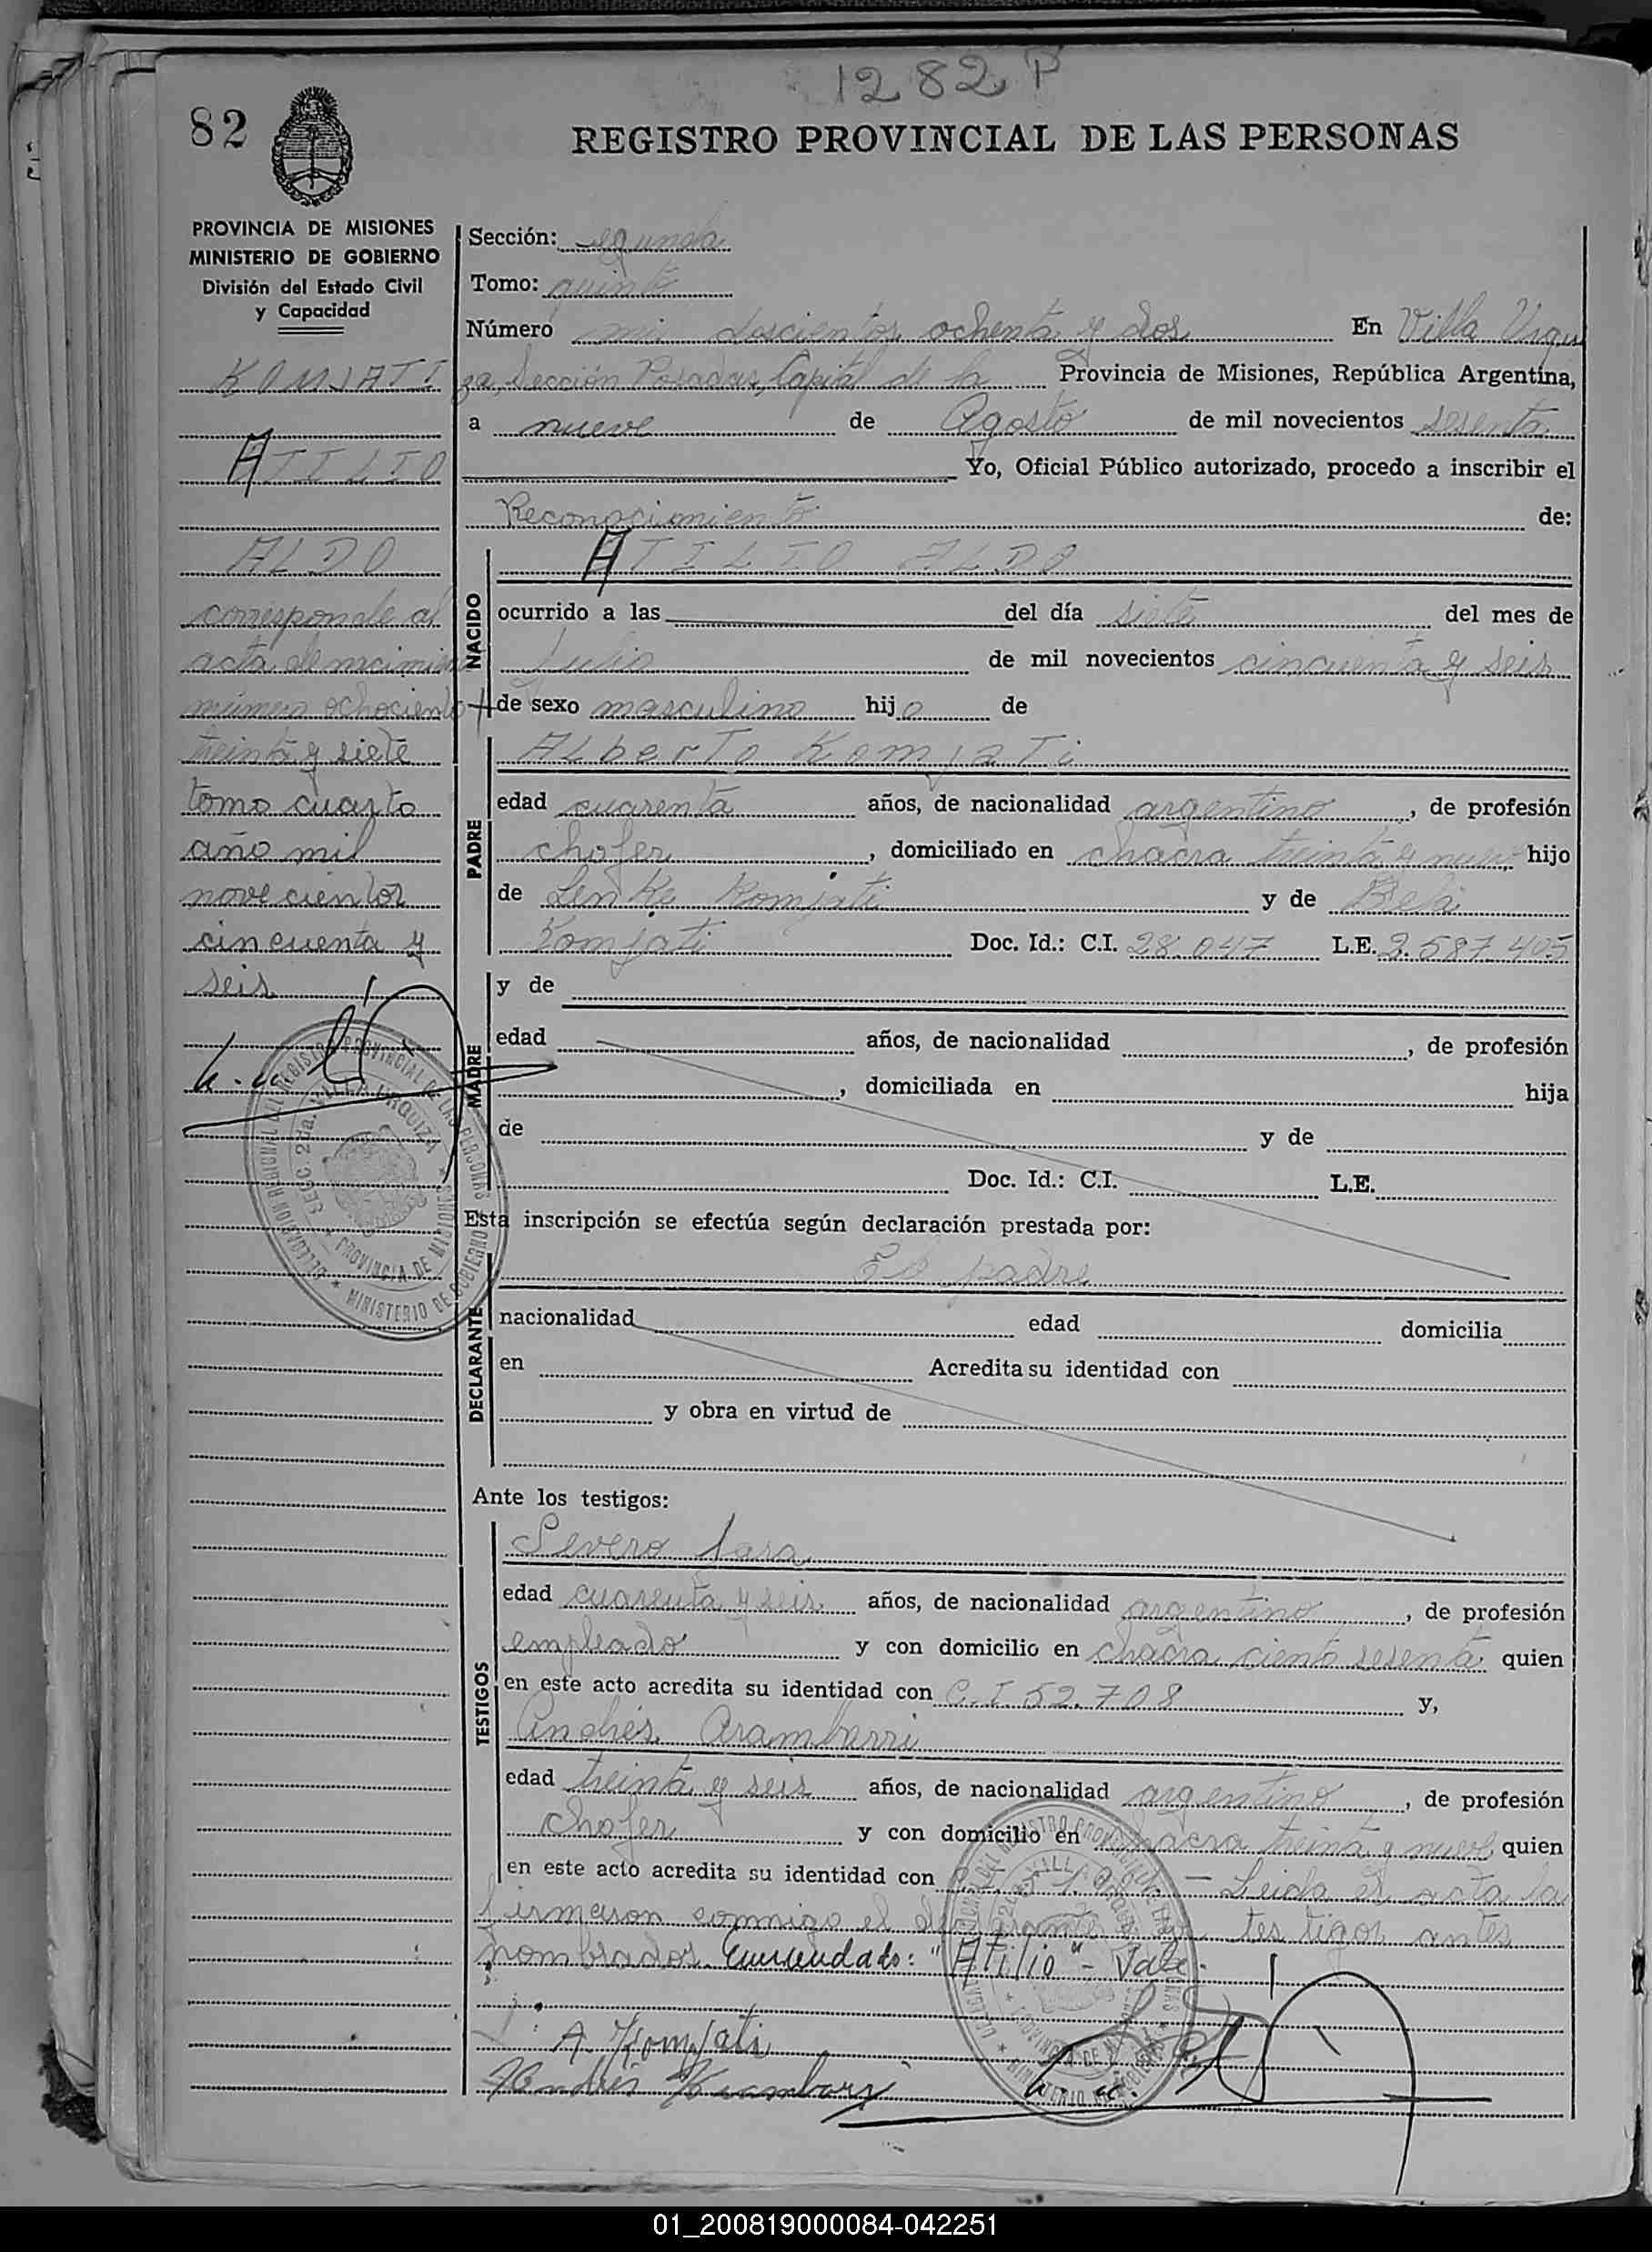 1282 P
82
REGISTRO PROVINCIAL DE LAS PERSONAS
PROVINCIA DE MISIONES
MINISTERIO DE GOBIERNO
División del Estado Civil
y Capacidad
KOMJATI
ATILIO
ALDO
corresponde al
acta de nacimien
número ochociento
treinta y siete
tomo cuarto
año mil
novecientos
cincuenta y
seis
Sección: segunda
Tomo: quinto
Número mil doscientos ochenta y dos En Villa Urqui
za, Sección Posadas, Capital de la Provincia de Misiones, República Argentina,
a nueve de Agosto de mil novecientos sesenta
Yo, Oficial Público autorizado, procedo a inscribir el
Reconocimiento de:
NACIDO
ATILIO ALDO
ocurrido a las del día siete del mes de
Julio de mil novecientos cincuenta y seis
de sexo masculino hijo de
PADRE
Alberto Komjati
edad cuarenta años, de nacionalidad argentino, de profesión
chofer, domiciliado en chacra treinta y nueve hijo
de Lenke Komjati y de Bela
Komjati Doc. Id.: C.I. 28.047 L.E. 2.587.405
MADRE
y de
edad años, de nacionalidad , de profesión
, domiciliada en hija
de y de
Doc. Id.: C.I. L.E.
Esta inscripción se efectúa según declaración prestada por:
DECLARANTE
El padre
nacionalidad edad domicilia
en Acredita su identidad con
y obra en virtud de
Ante los testigos:
TESTIGOS
Severo Lara
edad cuarenta y seis años, de nacionalidad argentino, de profesión
empleado y con domicilio en chacra ciento sesenta quien
en este acto acredita su identidad con C.I 52.708 y,
Andrés Aramburri
edad treinta y seis años, de nacionalidad argentino, de profesión
chofer y con domicilio en chacra treinta y nueve quien
en este acto acredita su identidad con — Leida el acta la
firmaron conmigo el declarante testigos antes
nombrados. Enmendado: "Atilio" - Vale.
A. Komjati
Andrés
DELEGACION REGIONAL DEL REGISTRO PROVINCIAL DE LAS PERSONAS
SECC. 2da. VILLA URQUIZA
PROVINCIA DE MISIONES
MINISTERIO DE GOBIERNO
01_200819000084-042251